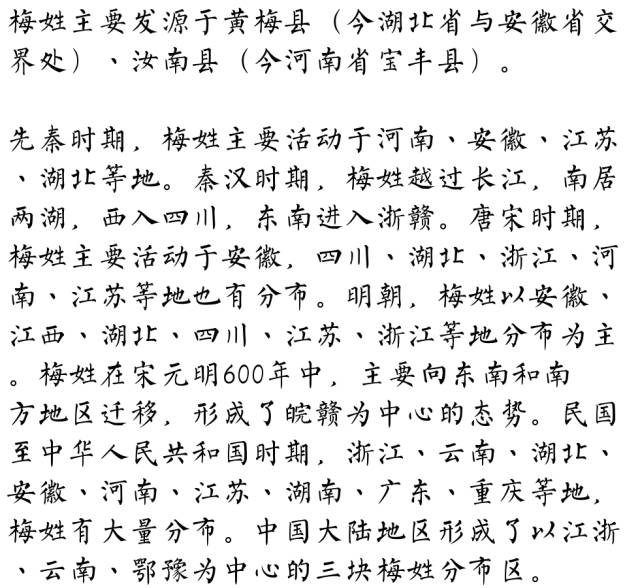 梅姓主要发源于黄梅县（今湖北省与安徽省交
界处）、汝南县（今河南省宝丰县）。
先秦时期，梅姓主要活动于河南、安徽、江苏
、湖北等地。秦汉时期，梅姓越过长江，南居
两湖，西入四川，东南进入浙赣。唐宋时期，
梅姓主要活动于安徽，四川、湖北、浙江、河
南、江苏等地也有分布。明朝，梅姓以安徽、
江西、湖北、四川、江苏、浙江等地分布为主
。梅姓在宋元明600年中，主要向东南和南
方地区迁移，形成了皖赣为中心的态势。民国
至中华人民共和国时期，浙江、云南、湖北、
安徽、河南、江苏、湖南、广东、重庆等地，
梅姓有大量分布。中国大陆地区形成了以江浙
、云南、鄂豫为中心的三块梅姓分布区。